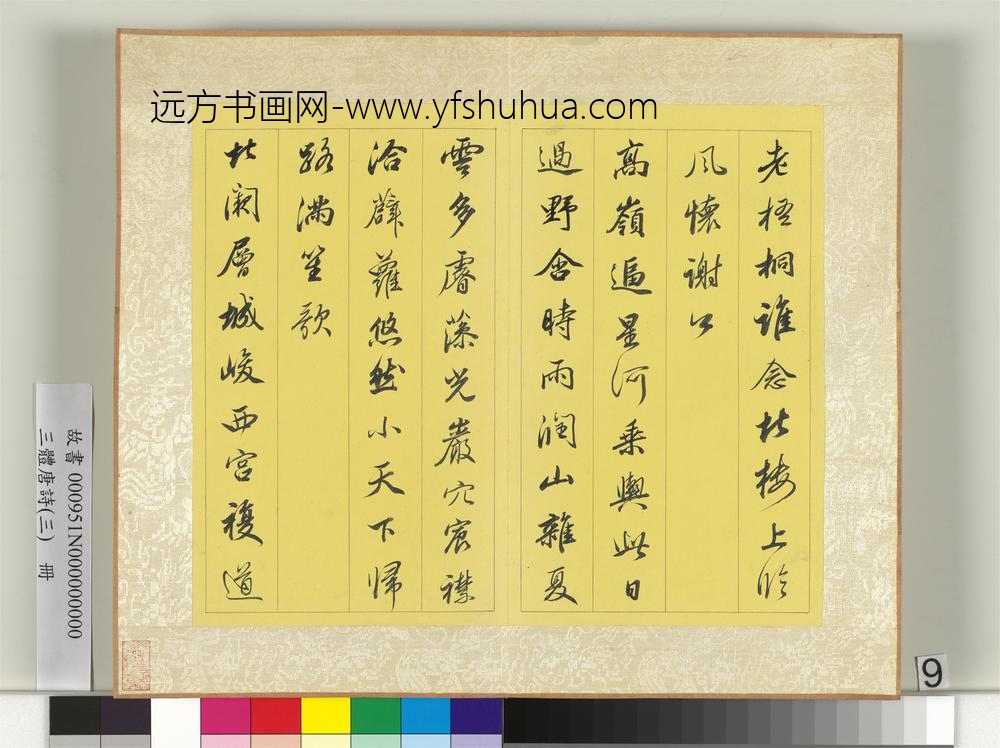 远方书画网-www.yfshuhua.com
老梧桐誰念北楼上臨
風懷謝公
高嶺逼星河乗輿此日
過野含時雨潤山雜夏
雲多睿藻光巖穴宸襟
洽薜蘿悠然小天下帰
路満笙歌
北闕層城峻西宮複道
故書 000951N000000000
三體唐詩(三) 冊
9